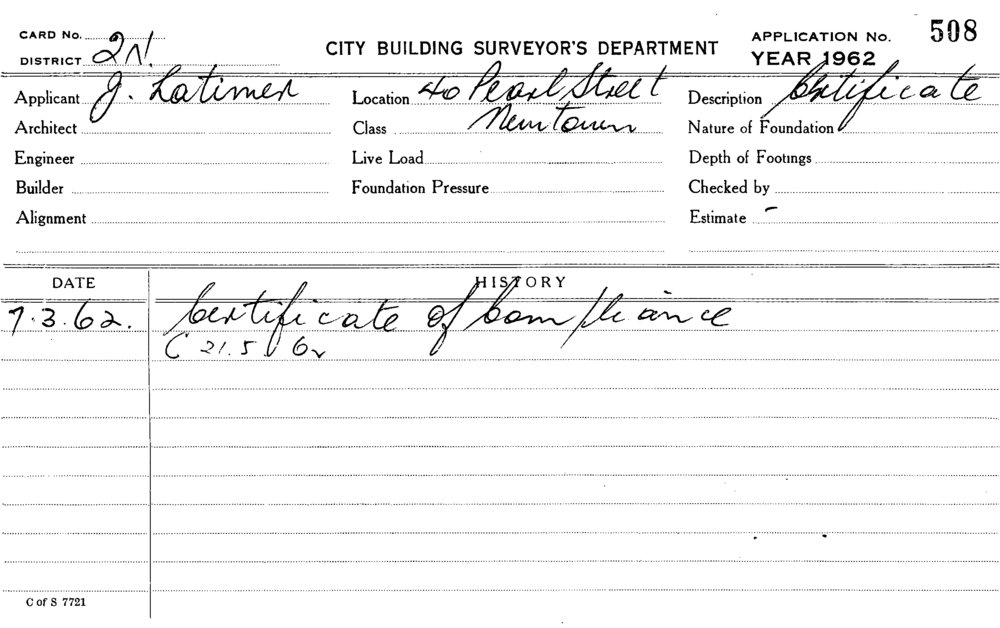 CARD No.
DISTRICT 2N.
CITY BUILDING SURVEYOR'S DEPARTMENT
APPLICATION No. 508
YEAR 1962
Applicant J. Latimer
Location 40 Pearl Street
Description Certificate
Architect
Class Newtown
Nature of Foundation
Engineer
Live Load
Depth of Footings
Builder
Foundation Pressure
Checked by
Alignment
Estimate -
DATE HISTORY
7.3.62. Certificate of Compliance
C 21.5 62
C of S 7721